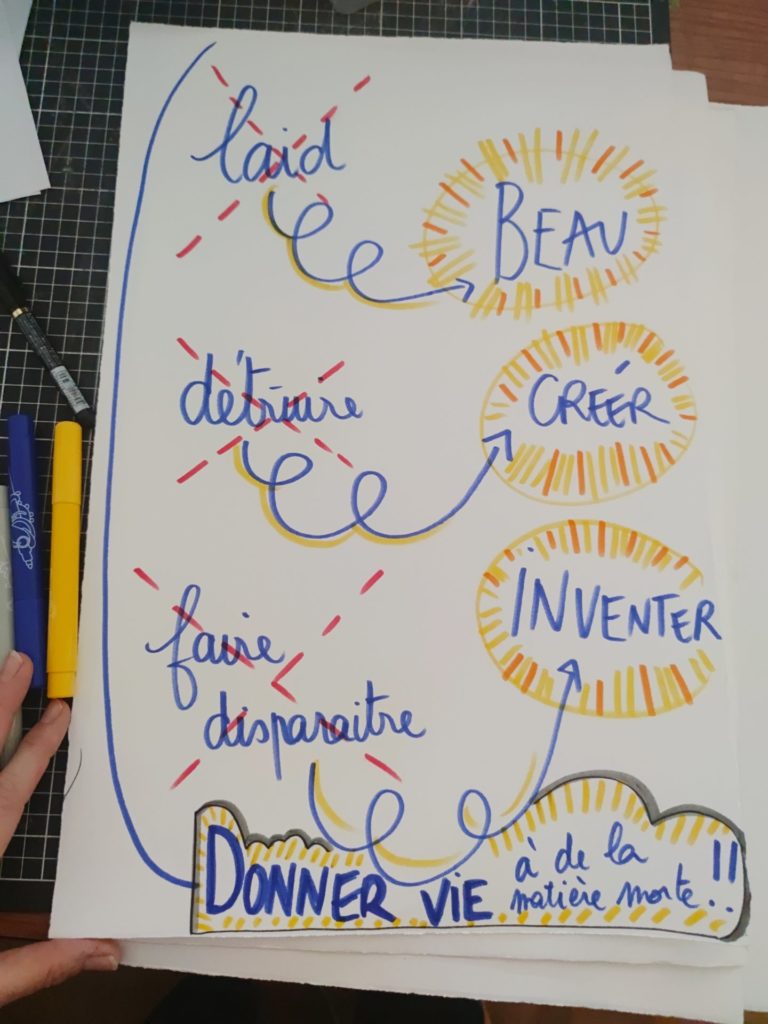 laid
BEAU
détruire
CRÉÉR
faire
disparaitre
INVENTER
DONNER VIE à de la
matière morte !!